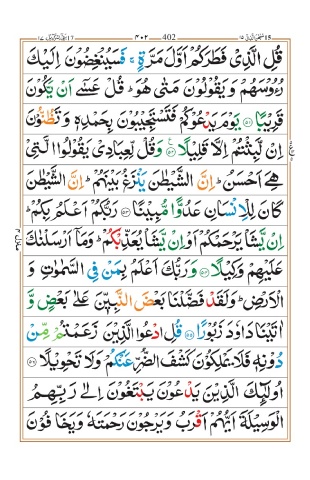 ۴۰۲ 402
قُلِ الَّذِىْ فَطَرَكُمْ اَوَّلَ مَرَّةٍ ۚ فَسَيُنْغِضُوْنَ اِلَيْكَ
رُءُوْسَهُمْ وَيَقُوْلُوْنَ مَتٰى هُوَ ؕ قُلْ عَسٰٓى اَنْ يَّكُوْنَ
قَرِيْبًا ۝۵۱ يَوْمَ يَدْعُوْكُمْ فَتَسْتَجِيْبُوْنَ بِحَمْدِهٖ وَتَظُنُّوْنَ
اِنْ لَّبِثْتُمْ اِلَّا قَلِيْلًا ۝۵۲ وَقُلْ لِّعِبَادِىْ يَقُوْلُوا الَّتِىْ
هِىَ اَحْسَنُ ؕ اِنَّ الشَّيْطٰنَ يَنْزَغُ بَيْنَهُمْ ؕ اِنَّ الشَّيْطٰنَ
كَانَ لِلْاِنْسَانِ عَدُوًّا مُّبِيْنًا ۝۵۳ رَبُّكُمْ اَعْلَمُ بِكُمْ ؕ
اِنْ يَّشَاْ يَرْحَمْكُمْ اَوْ اِنْ يَّشَاْ يُعَذِّبْكُمْ ؕ وَمَاۤ اَرْسَلْنٰكَ
عَلَيْهِمْ وَكِيْلًا ۝۵۴ وَرَبُّكَ اَعْلَمُ بِمَنْ فِى السَّمٰوٰتِ وَ
الْاَرْضِ ؕ وَلَقَدْ فَضَّلْنَا بَعْضَ النَّبِيّٖنَ عَلٰى بَعْضٍ وَّ
اٰتَيْنَا دَاوٗدَ زَبُوْرًا ۝۵۵ قُلِ ادْعُوا الَّذِيْنَ زَعَمْتُمْ مِّنْ
دُوْنِهٖ فَلَا يَمْلِكُوْنَ كَشْفَ الضُّرِّ عَنْكُمْ وَلَا تَحْوِيْلًا ۝۵۶
اُولٰٓئِكَ الَّذِيْنَ يَدْعُوْنَ يَبْتَغُوْنَ اِلٰى رَبِّهِمُ
الْوَسِيْلَةَ اَيُّهُمْ اَقْرَبُ وَيَرْجُوْنَ رَحْمَتَهٗ وَيَخَافُوْنَ